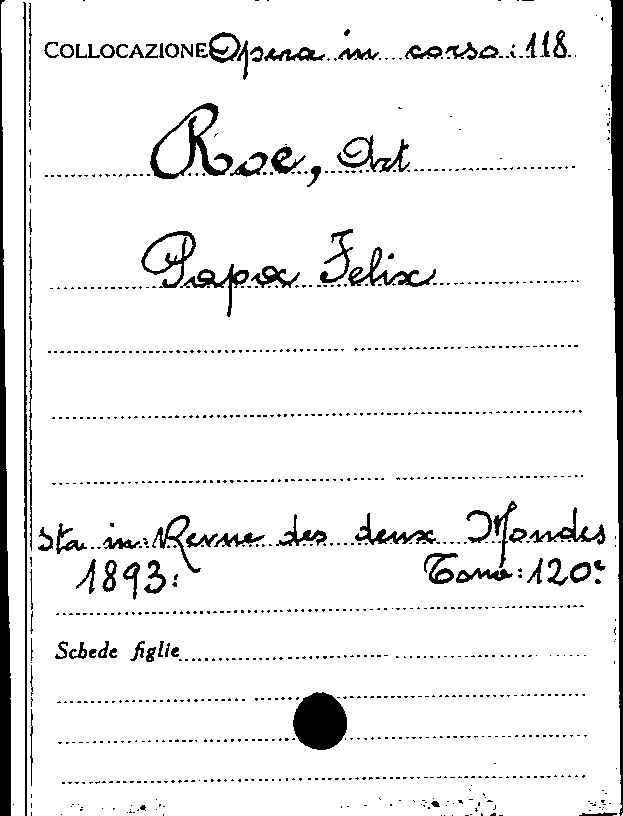 COLLOCAZIONE Opera in corso: 118
Roe, Art
Papa Felix
sta in: Revue des deux Mondes
1893: Tome: 120e
Schede figlie